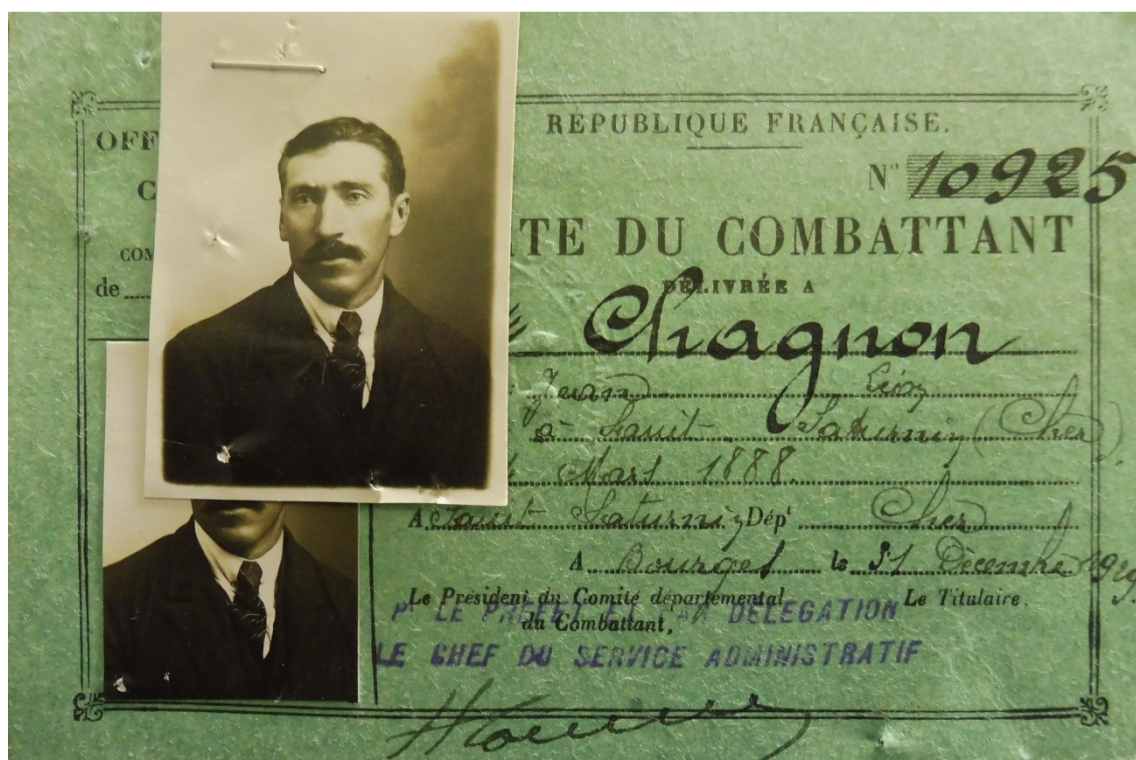 RÉPUBLIQUE FRANÇAISE.
OFF
N° 10925
C
TE DU COMBATTANT
COM
DÉLIVRÉE A
de
Chagnon
Jean Léon
à Saint-Saturnin (Cher)
Mars 1888.
A Saint Saturnin Dépt Cher
A Bourges le 31 Décembre 1929
Le Président du Comité départemental
du Combattant,
Le Titulaire.
Pr LE PRÉFET ET PAR DÉLÉGATION
LE CHEF DU SERVICE ADMINISTRATIF